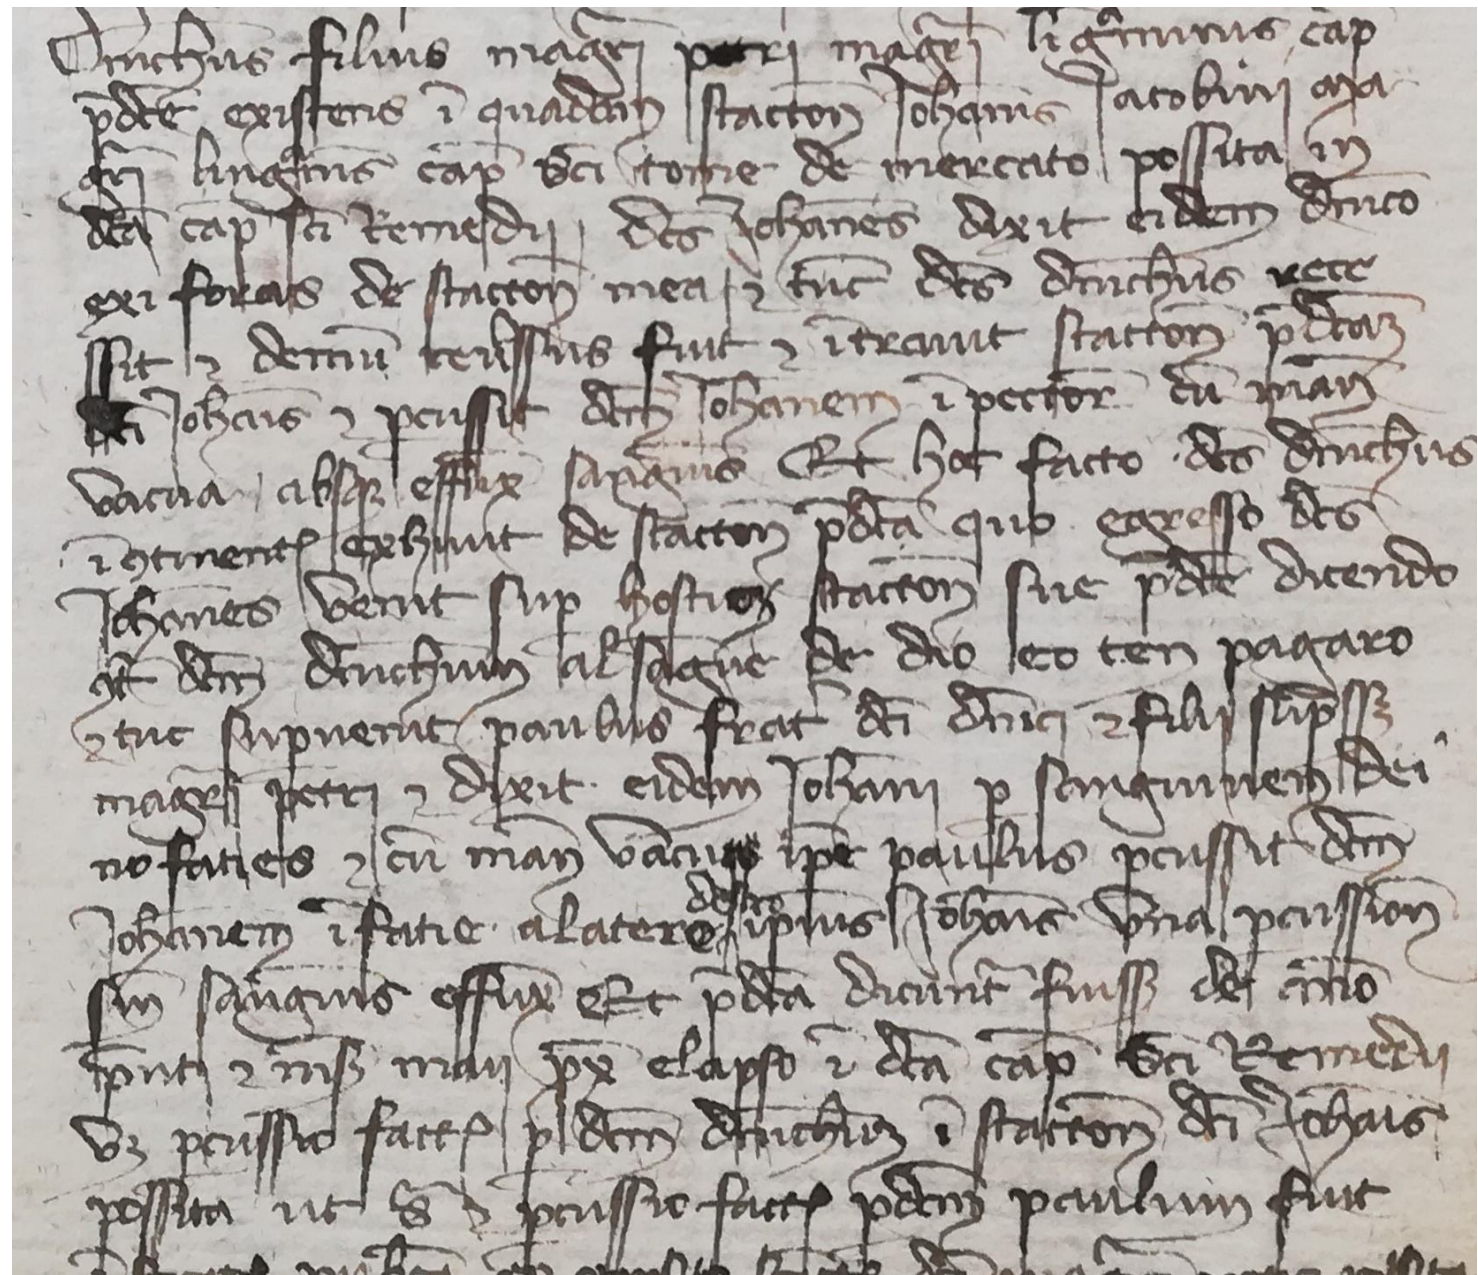 Dmichus filius magri petri magri lignminis cap
pdce existens i quadam stacton Johanis Jacobini ma
gri lingnmis cap sci tome de mercato possita in
dca cap sci Remedii dcs Johanes dixit eidem dmico
exi foras de stacton mea et tuc dcs dmichus rece
ssit et demu reussus fuit et itravit stacton pdcam
dci Johais et pcussit dcm Johanem i pector cu man
vacua absq effux sanguis Et hoc facto dcs dmichus
i gtinent exivit de stacton pdca quo egresso dcs
Johanes venit sup hostium stacton sue pdce dicendo
dcm dmichum al sangue de dio eo ten pagaro
et tuc supvenit paulus frat dci dmici et filii
magri petri et dixit eidem Johani p sanguinem dei
no faties et cu man vacua ipe paulus pcussit dcm
Johanem i fatie a latere destro ipius Johais una pcussion
sin sanguis effux Et pdca dicunt fuisse de ano
pnti et mse maii px elapso i dca cap sci Remedii
vz pcussio fact p dcm dmichum i stacton dci Johais
possita ut s et pcussio fact p dcm paulum fuit